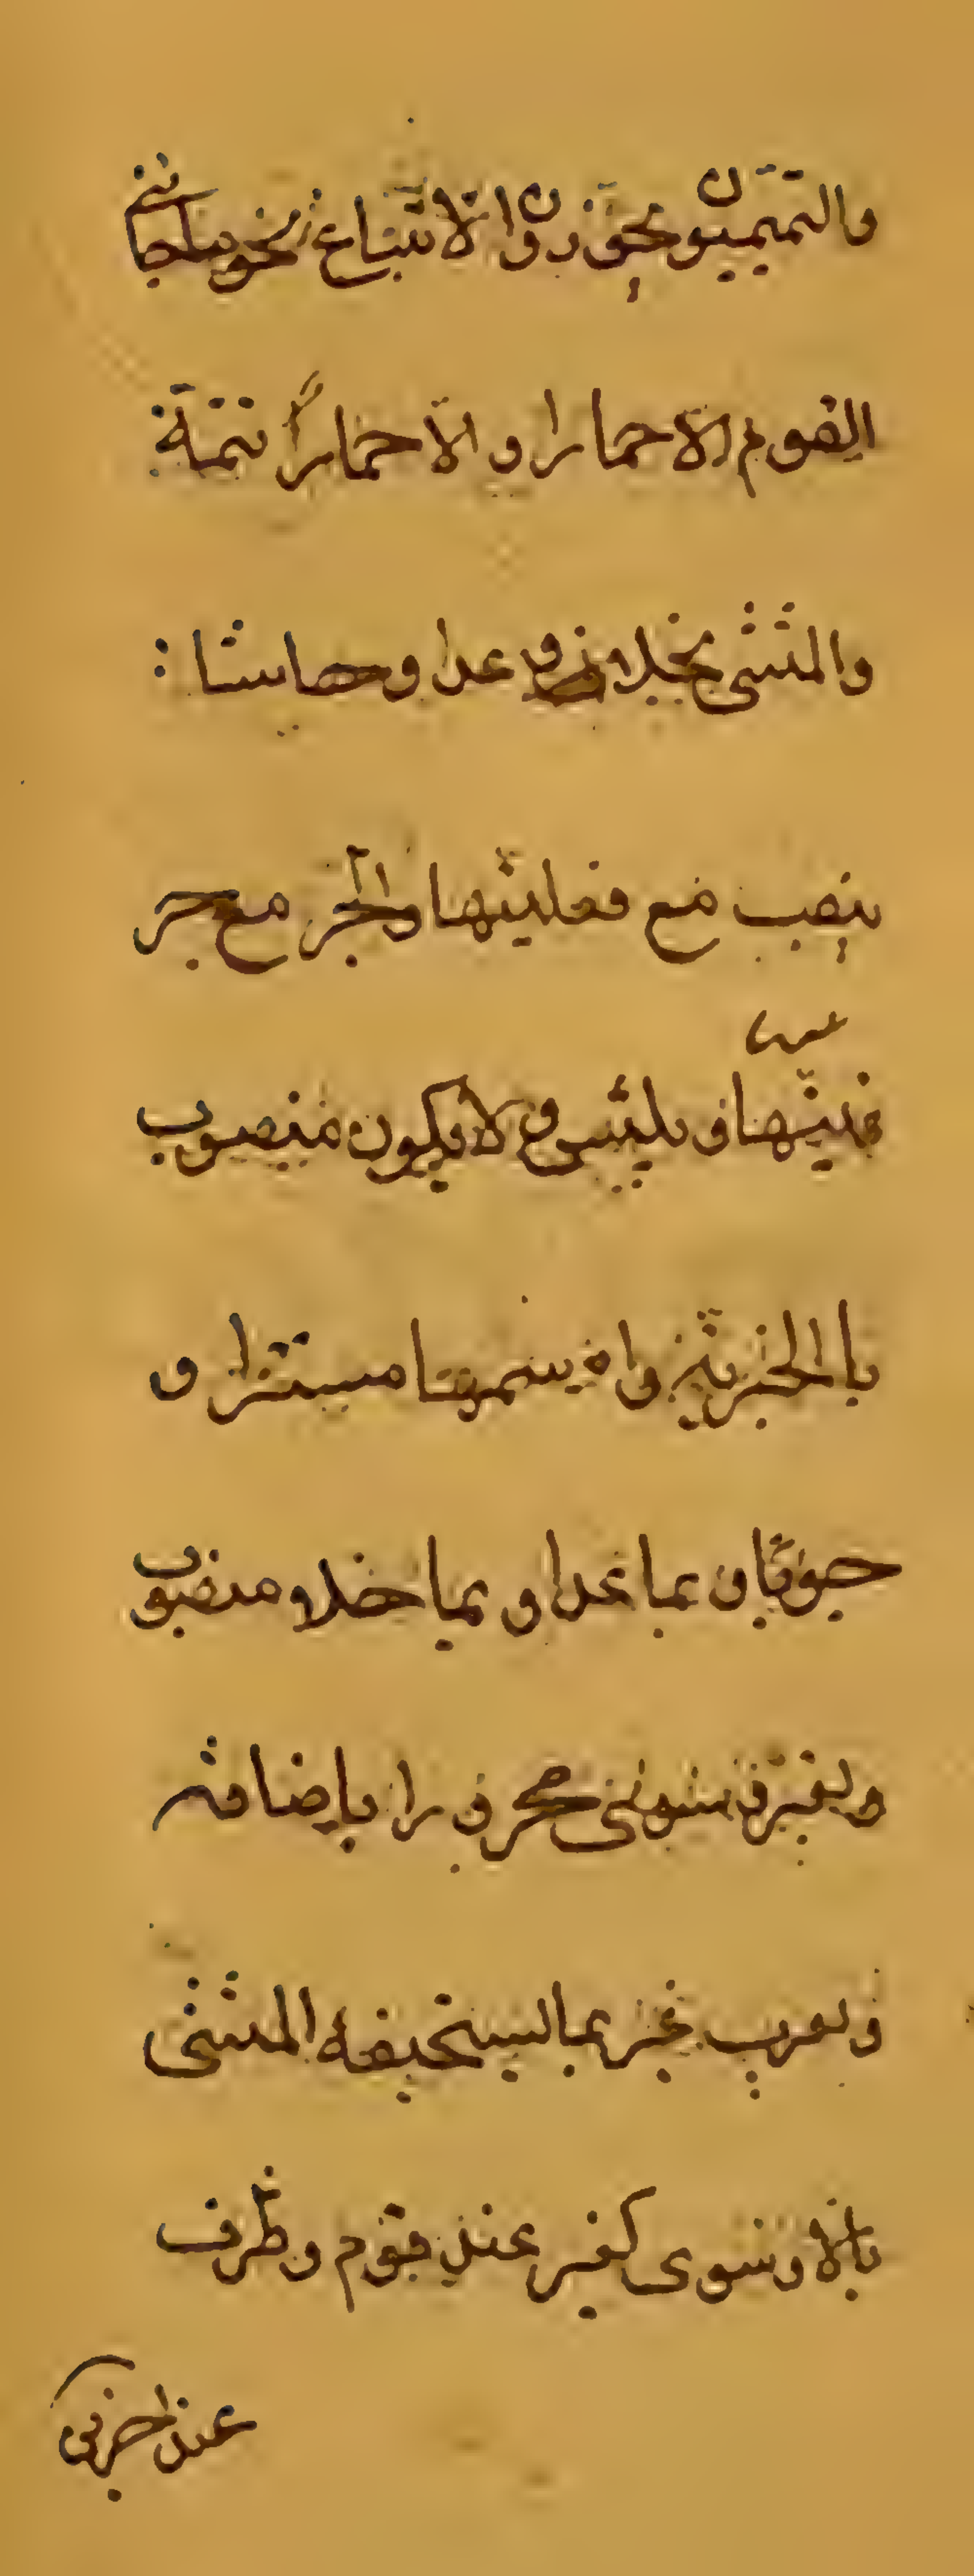 والتميميون يجوزون الاتباع نحو ما جائني
القوم الا حمارا و الا حمارا تتمة
والمثنى بخلا و عدا وحاشا :
ينصب مع فعليتها والجر مع حر
فيتها و بليس و لا يكون منصوب
باالخبرية و اسمهما مستترا و
جوبا و بما عدا و بما خلا منصوب
و بغير و سوى مجرورا باضافته
و يعرب غير بما يستحيقه المثنى
بالا و سوى كغير عند قوم و ظرف
عند اخرين